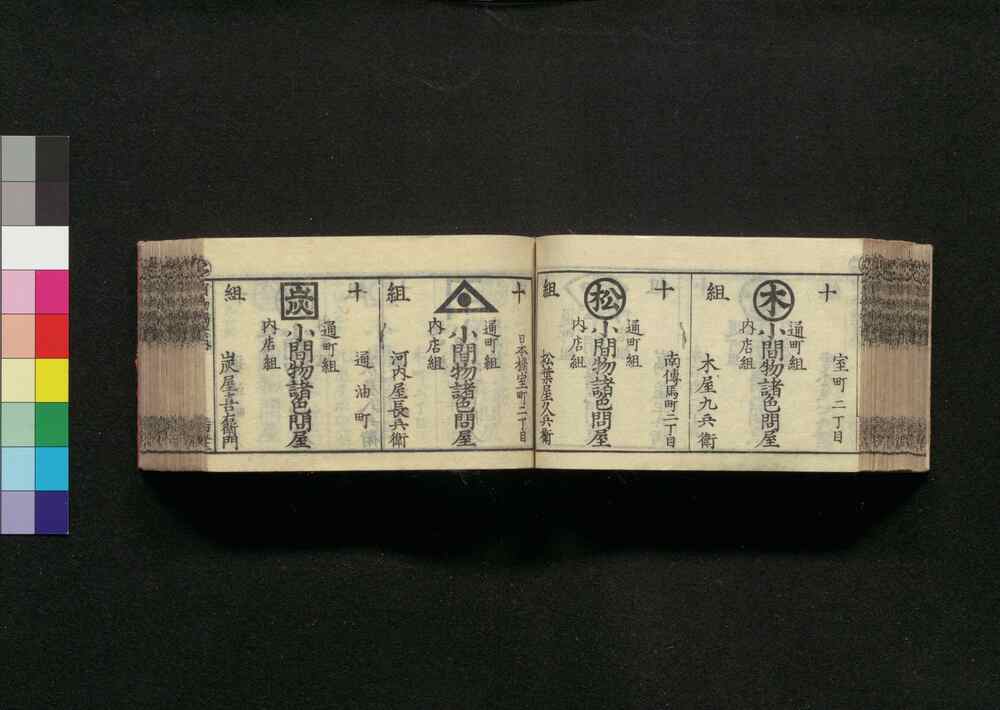 十
組
木
通町組
内店組
小間物諸色問屋
室町二丁目
木屋九兵衛
十
組
松
通町組
内店組
小間物諸色問屋
南傳馬町二丁目
松葉屋久兵衛
十
組
通町組
内店組
小間物諸色問屋
日本橋室町二丁目
河内屋長兵衛
十
組
炭
通町組
内店組
小間物諸色問屋
通油町
炭屋吉右衛門